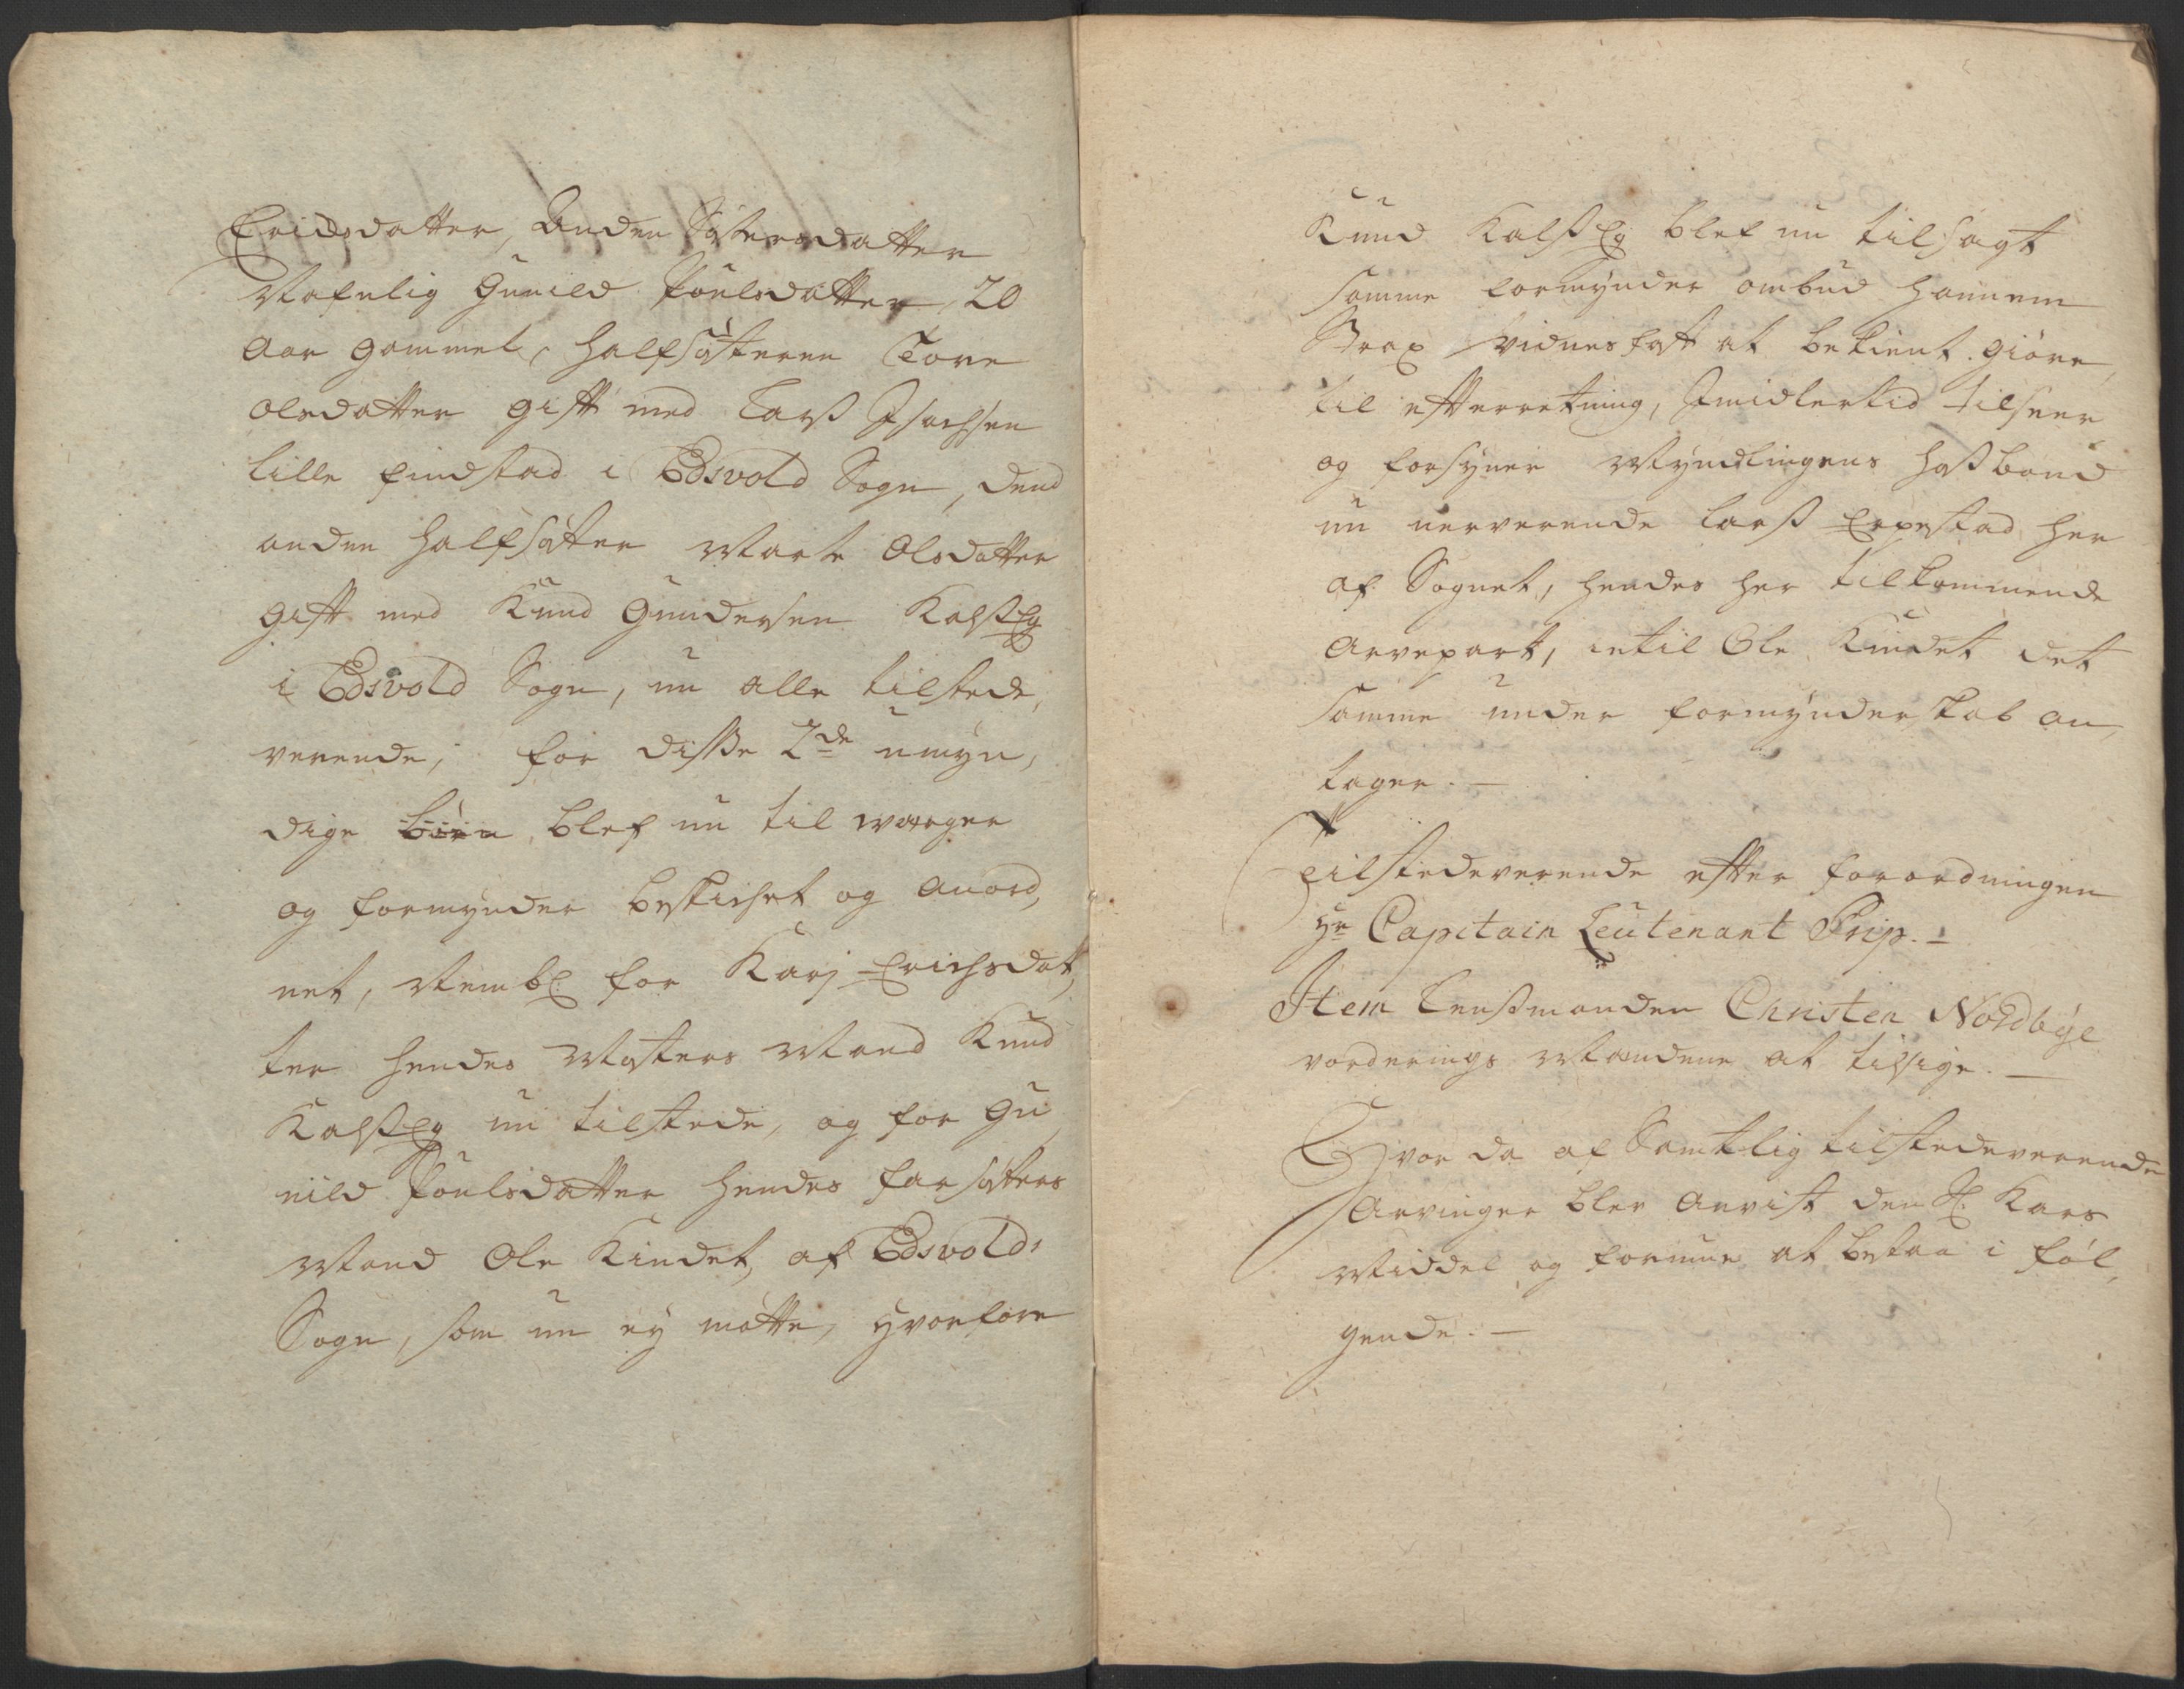 Erichsdatter, Anden Søstersdatter
Nafnlig Gunild Poulsdatter, 20
Aar gammel, halfsøsteren Tore
Olsdatter gift med Larß Isachsen
lille findstad i Edsvold Sogn, dend
anden halfsøster Marte Olsdatter
gift med Knud Gundersen Kalß Eg
i Edsvold Sogn, nu alle tilstede,
verende, for disse 2de umyn,
dige børn, blef nu til werger
og formynder beskichet og anord,
net, Nembl: for Karj Erichsdat,
ter hendes Mosters Mand Knud
Kalß Eg nu tilstede, og for Gu
nild Poulsdatter hendes farsøsters
Mand Ole Kindet, af Edsvolds
Sogn, som nu ey møtte, hvorfore
Knud Kalß Eg blef nu tilsagt
samme formynder ombud hannem
Strax vidnesfast at bekient giøre,
til efterretning, Imidlertid tilseer
og forsyner Myndlingens hosbond
nu nerverende Larß Erpestad her
af Sognet, hendes her tilkommende
Arvepart, intil Ole Kindet det
samme under formynderskab an,
tager. —
Tilstedeverende efter forordningen
Hr Capitain Leutenant Prip. —
Item Lensmanden Christen Nordbye
vorderings Mændene at tilsige. —
Hvor da af Samtlig tilstedeverende
Arvinger blev Anvist den Sl: Kars
Middel og formue at bestaa i føl,
gende. —